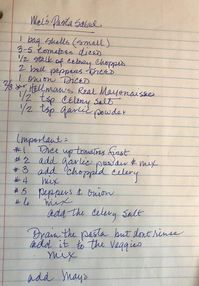 Mel's Pasta Salad
1 bag shells (small)
3-5 tomatoes diced
1/2 stalk of celery chopped
2 bell peppers diced
1 onion diced
Hellman's Real Mayonnaise
1/2 tsp celery salt
1/2 tsp garlic powder
Important:
#1 Dice up tomatoes first
#2 add garlic powder & mix
#3 add chopped celery
#4 mix
#5 Peppers & onion
#6 mix
add the celery salt
Drain the pasta but dont rinse
add it to the veggies
mix
add mayo